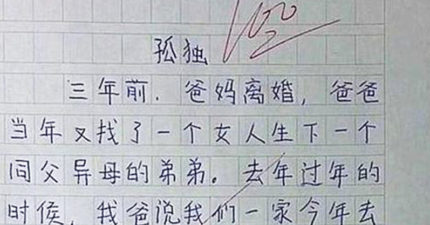 100
孤独
三年前．爸妈离婚，爸爸
当年又找了一个女人生下一个
同父异母的弟弟。去年过年的
时候，我爸说我们一家今年去